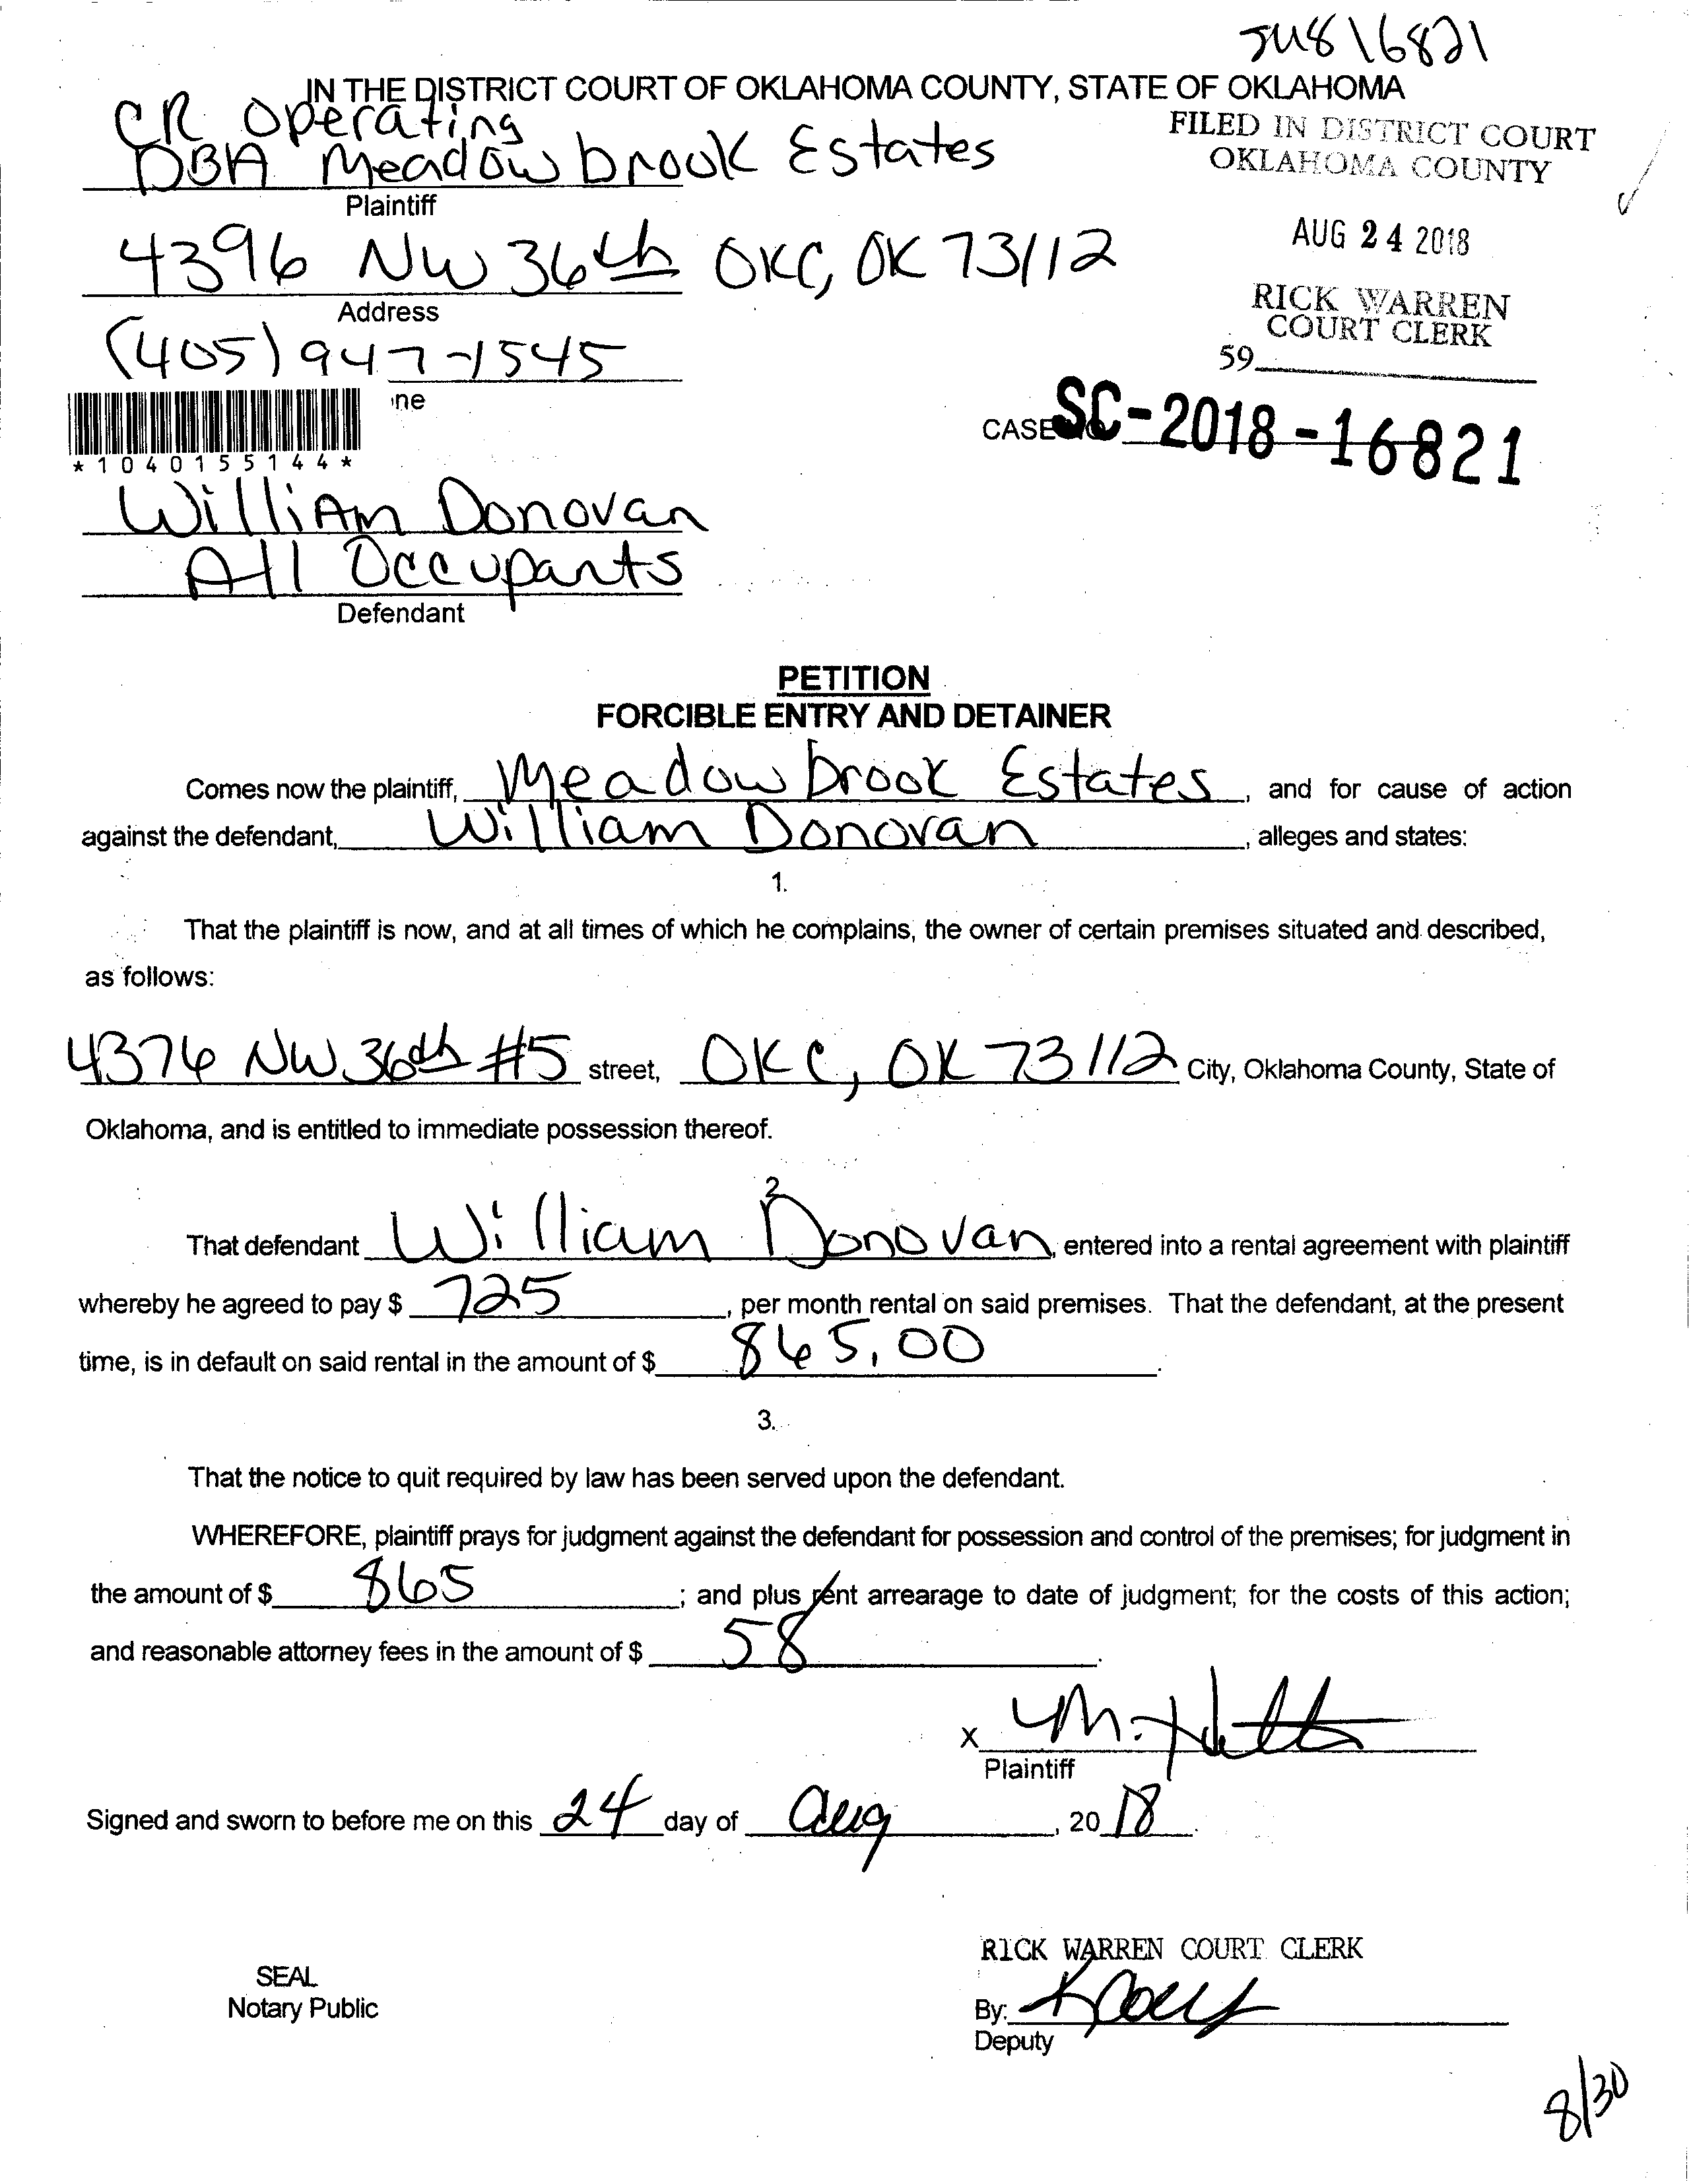 IN THE DISTRICT COURT OF OKLAHOMA COUNTY, STATE OF OKLAHOMA
CR Operating
DBA Meadowbrook Estates
Plaintiff
FILED IN DISTRICT COURT
OKLAHOMA COUNTY
AUG 24 2018
RICK WARREN
COURT CLERK
59
4396 NW 36th OKC, OK 73112
Address
(405) 947-1545
ne
*1040155144*
CASE NO SC-2018-16821
William Donovan
All Occupants
Defendant
PETITION
FORCIBLE ENTRY AND DETAINER
Comes now the plaintiff, Meadowbrook Estates, and for cause of action
against the defendant, William Donovan, alleges and states:
1.
That the plaintiff is now, and at all times of which he complains, the owner of certain premises situated and described,
as follows:
4376 NW 36th #5 street, OKC, OK 73112 City, Oklahoma County, State of
Oklahoma, and is entitled to immediate possession thereof.
2
That defendant William Donovan, entered into a rental agreement with plaintiff
whereby he agreed to pay $ 725, per month rental on said premises. That the defendant, at the present
time, is in default on said rental in the amount of $ 865.00.
3.
That the notice to quit required by law has been served upon the defendant.
WHEREFORE, plaintiff prays for judgment against the defendant for possession and control of the premises; for judgment in
the amount of $ 865; and plus rent arrearage to date of judgment; for the costs of this action;
and reasonable attorney fees in the amount of $ 58.
X
Plaintiff
Signed and sworn to before me on this 24 day of Aug, 2018.
SEAL
Notary Public
RICK WARREN COURT CLERK
By:
Deputy
8/30